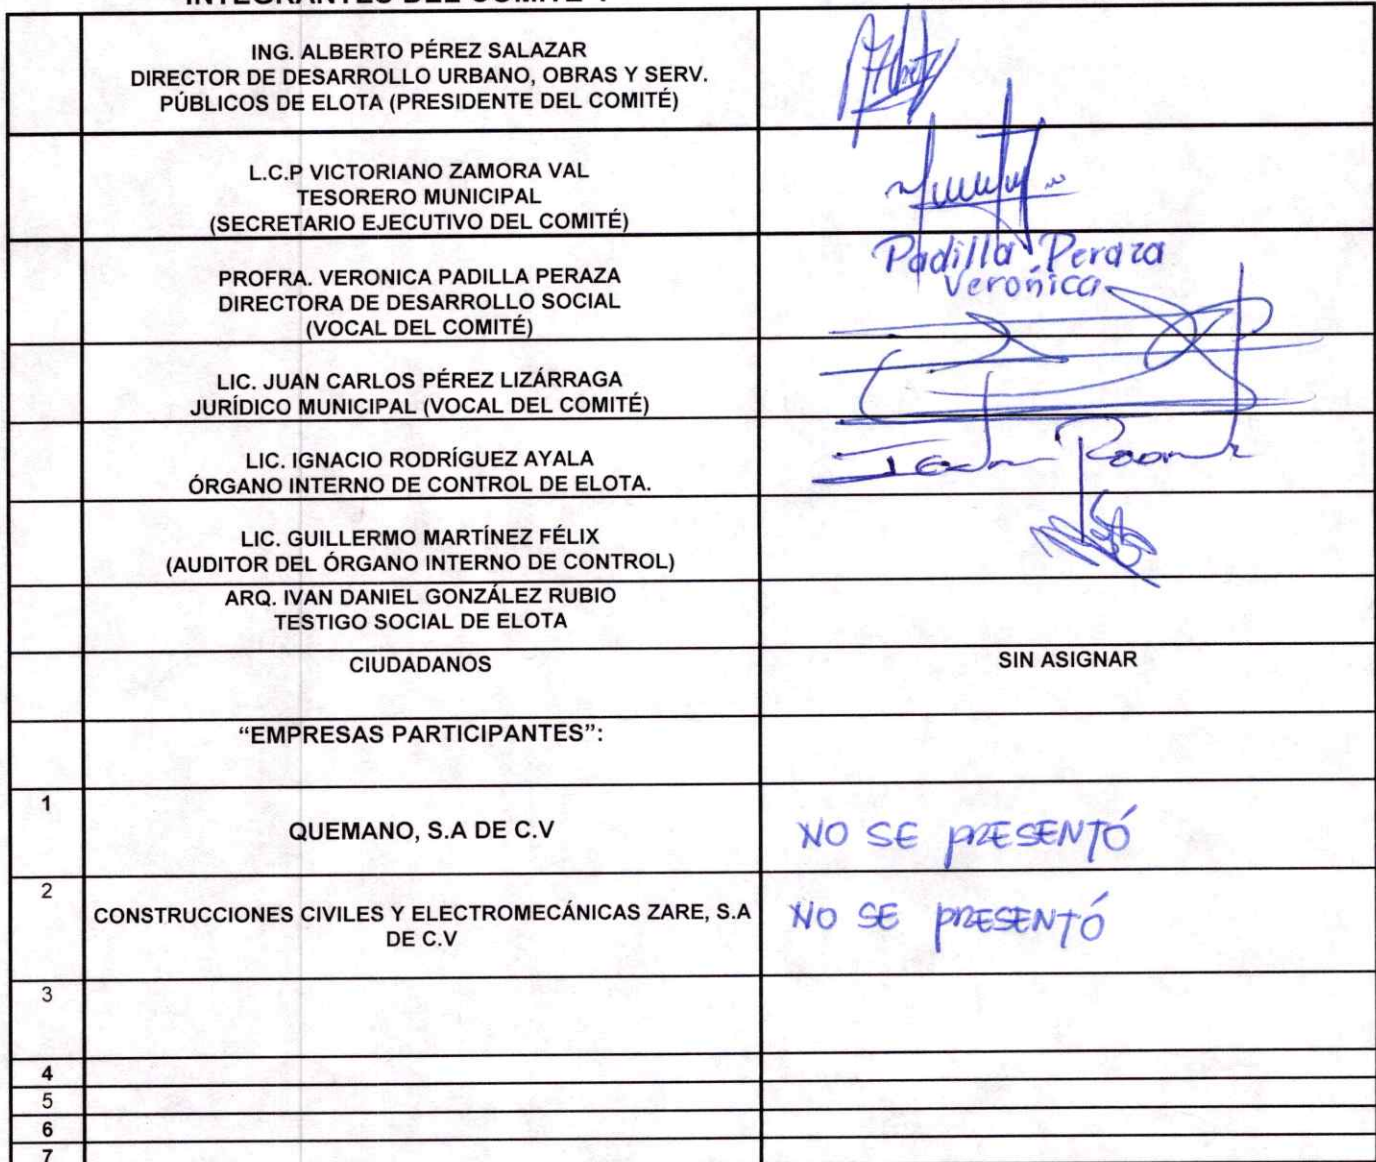 INTEGRANTES DEL COMITÉ
ING. ALBERTO PÉREZ SALAZAR
DIRECTOR DE DESARROLLO URBANO, OBRAS Y SERV.
PÚBLICOS DE ELOTA (PRESIDENTE DEL COMITÉ)
L.C.P VICTORIANO ZAMORA VAL
TESORERO MUNICIPAL
(SECRETARIO EJECUTIVO DEL COMITÉ)
PROFRA. VERONICA PADILLA PERAZA
DIRECTORA DE DESARROLLO SOCIAL
(VOCAL DEL COMITÉ)
Padilla Peraza
Verónica
LIC. JUAN CARLOS PÉREZ LIZÁRRAGA
JURÍDICO MUNICIPAL (VOCAL DEL COMITÉ)
LIC. IGNACIO RODRÍGUEZ AYALA
ÓRGANO INTERNO DE CONTROL DE ELOTA.
LIC. GUILLERMO MARTÍNEZ FÉLIX
(AUDITOR DEL ÓRGANO INTERNO DE CONTROL)
ARQ. IVAN DANIEL GONZÁLEZ RUBIO
TESTIGO SOCIAL DE ELOTA
CIUDADANOS SIN ASIGNAR
“EMPRESAS PARTICIPANTES”:
1
QUEMANO, S.A DE C.V NO SE PRESENTÓ
2
CONSTRUCCIONES CIVILES Y ELECTROMECÁNICAS ZARE, S.A
DE C.V
NO SE PRESENTÓ
3
4
5
6
7